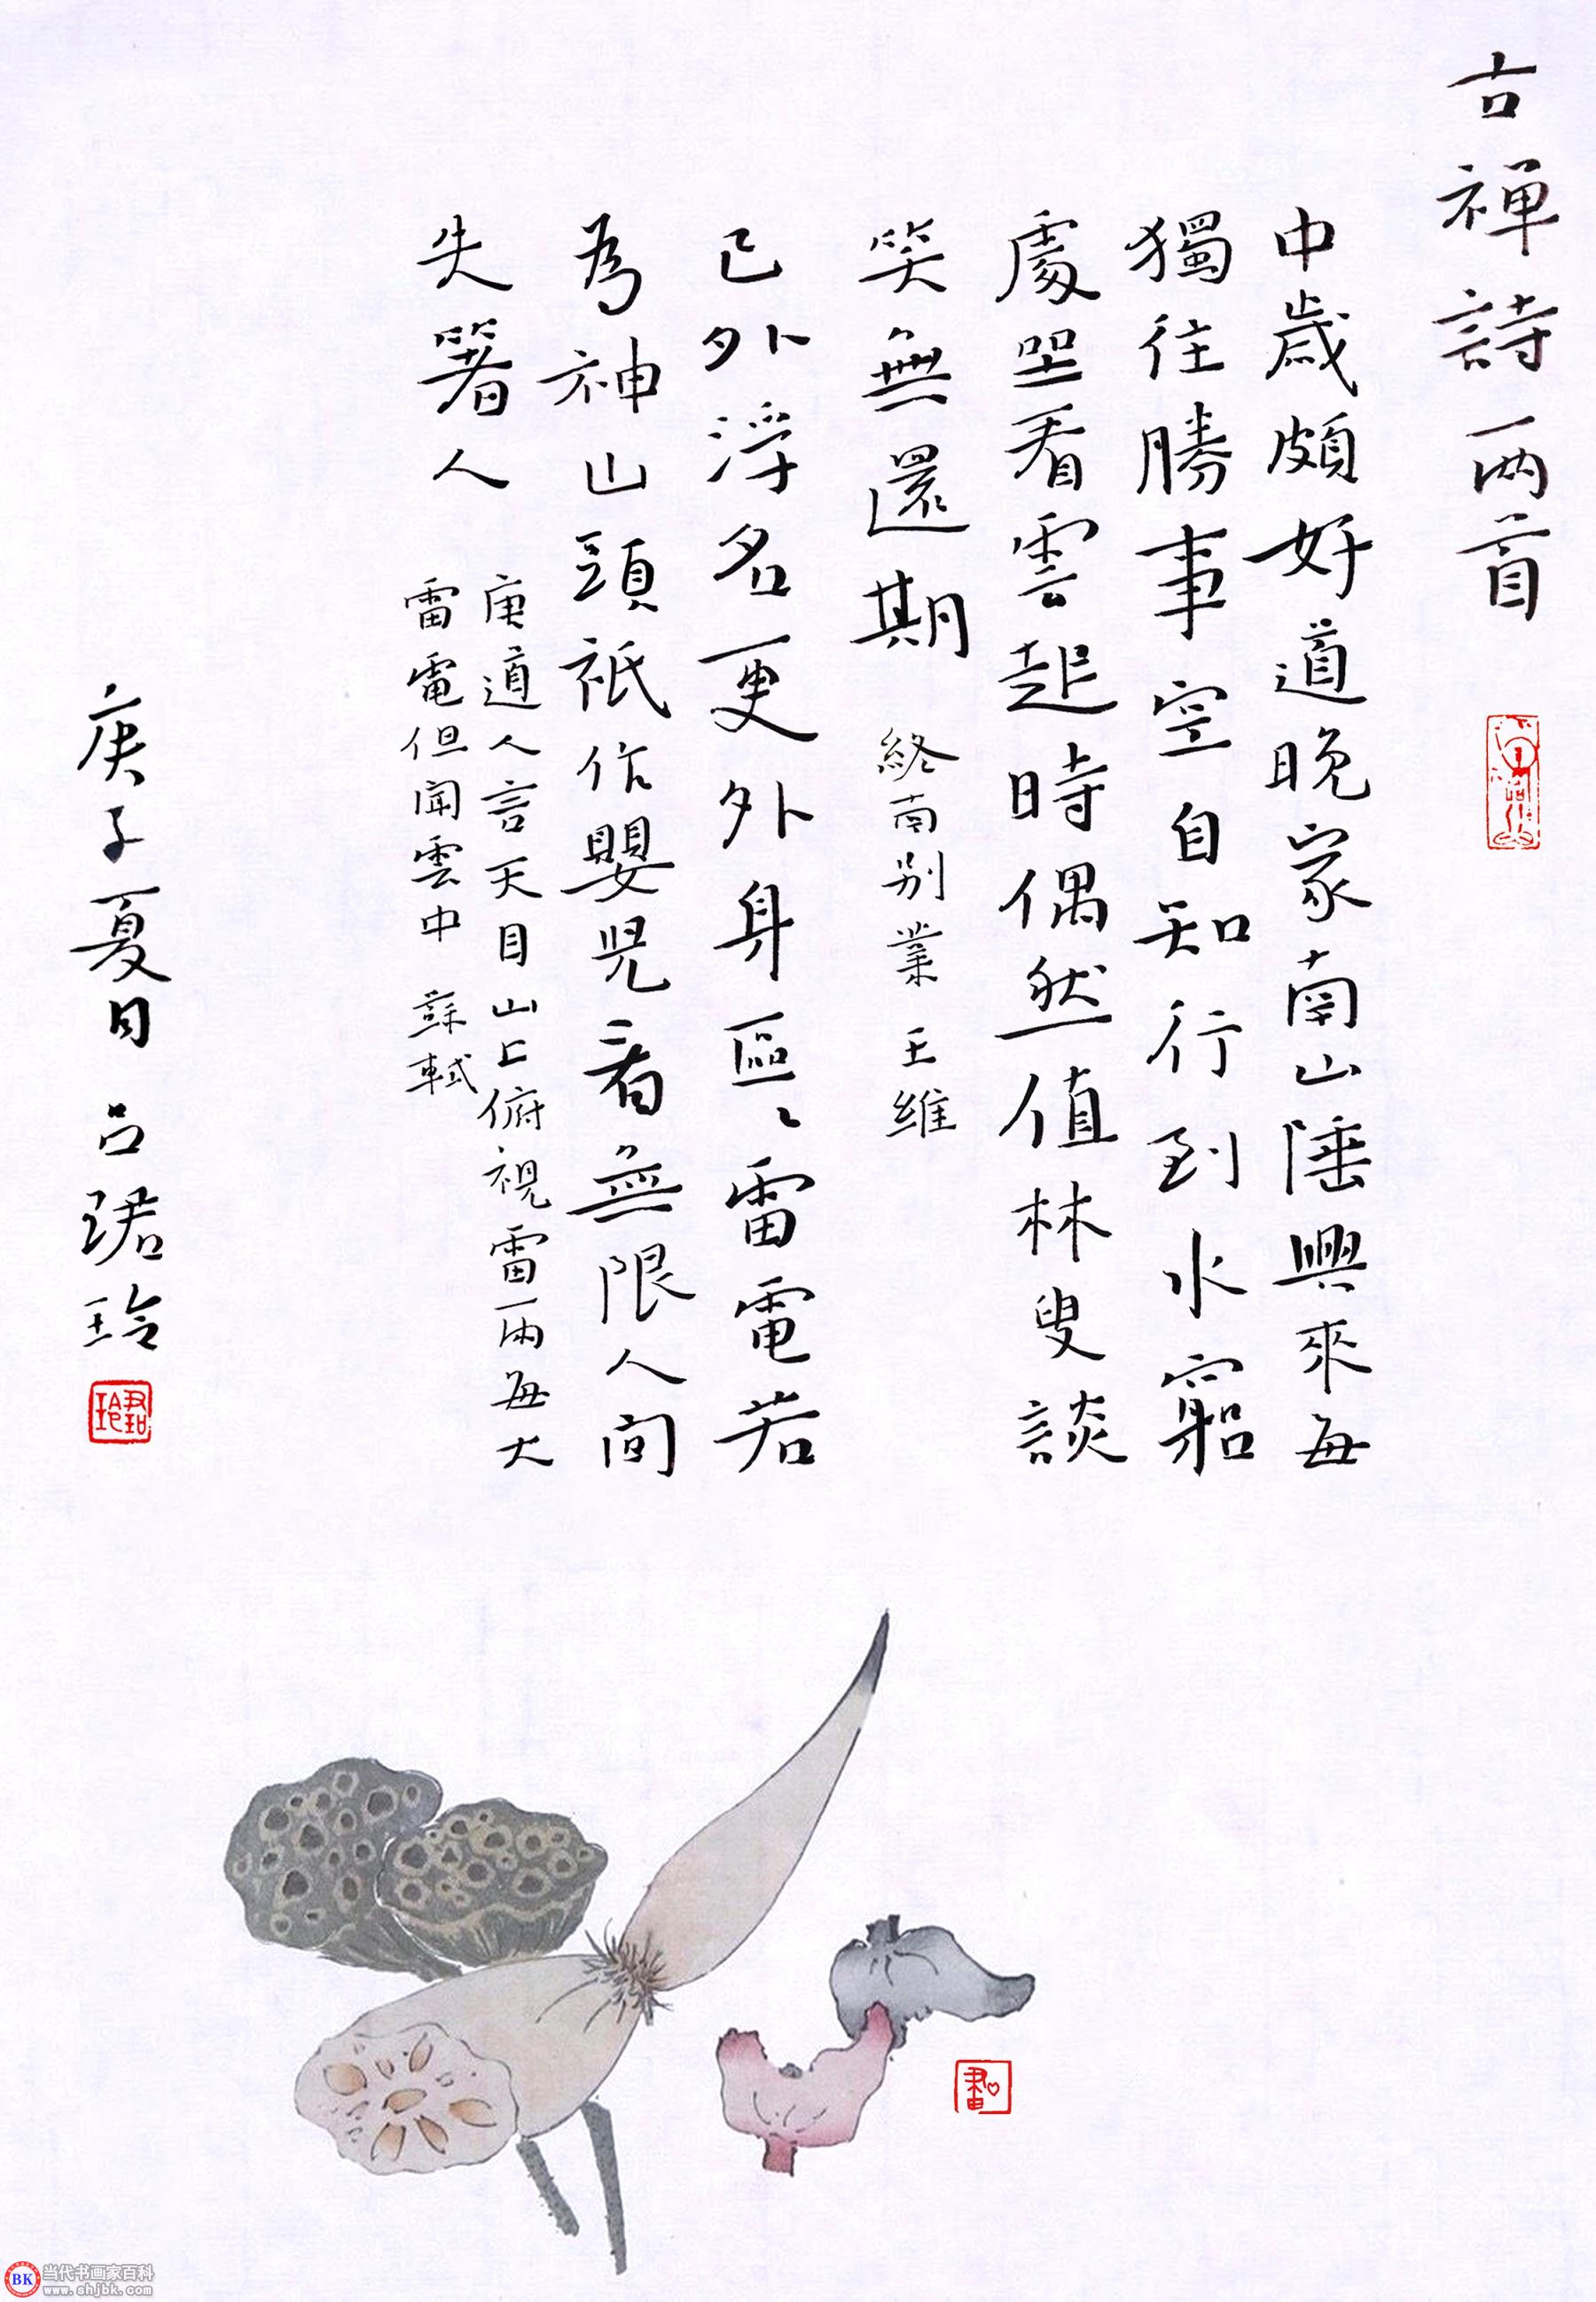 古禅詩两首
中歲頗好道晚家南山陲興來每
獨往勝事空自知行到水窮
處坐看雲起時偶然值林叟談
笑無還期 終南别業 王維
已外浮名更外身區〻雷電若
為神山頭祇作嬰兒看無限人間
失箸人
唐道人言天目山上俯視雷雨每大
雷電但聞雲中 蘇軾
庚子夏日 吕珺玲
珺玲
BK 当代书画家百科
www.shjbk.com